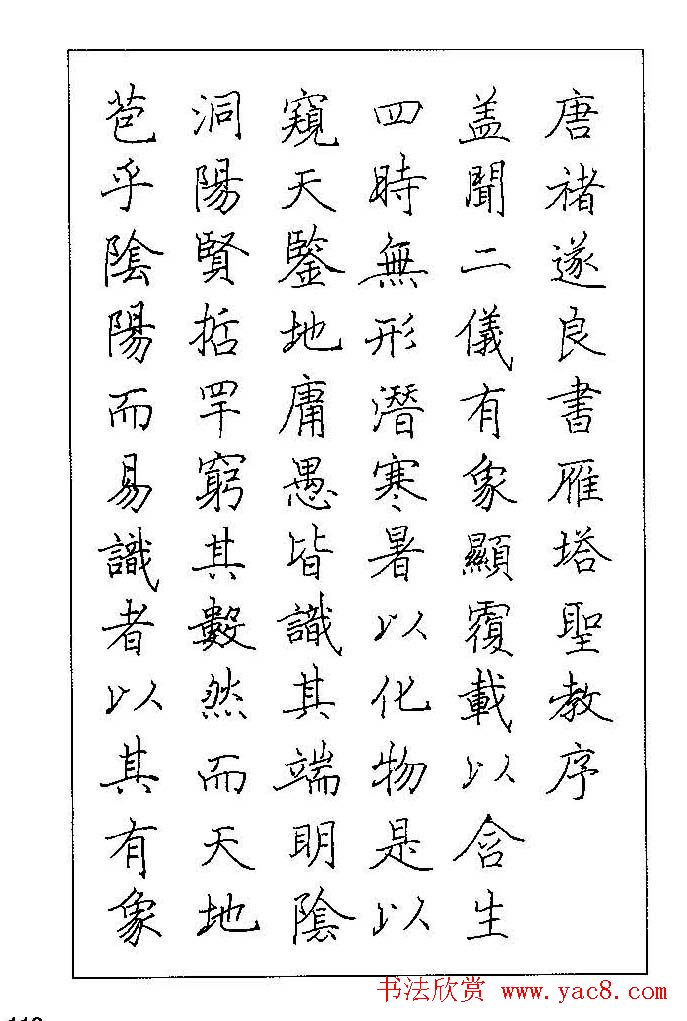 唐褚遂良書雁塔聖教序
盖聞二儀有象顯覆載以含生
四時無形潛寒暑以化物是以
窺天鑒地庸愚皆識其端明陰
洞陽賢哲罕窮其數然而天地
苞乎陰陽而易識者以其有象
书法欣赏 www.yac8.com